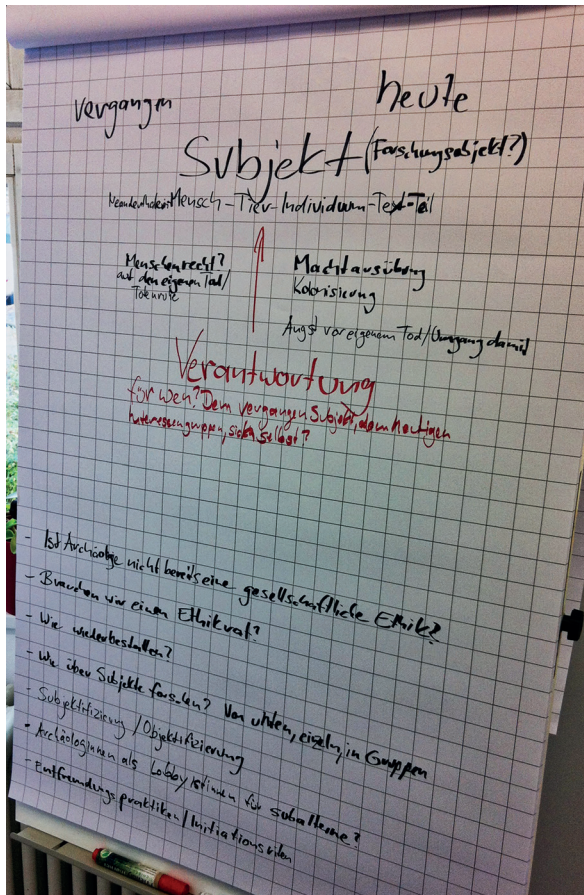 vergangen
heute
Subjekt (Forschungsobjekt?)
Mensch - Tier - Individuum - Text - Teil
Menschenrecht?
auf den eigenen Tod/
Totenruhe
Machtausübung
Kolonisierung
Angst vor eigenem Tod/Umgang damit
Verantwortung
für wen? Dem vergangen Subjekt, dem heutigen
Interessengruppen, sich selbst?
- Ist Archäologie nicht bereits eine gesellschaftliche Ethik?
- Brauchen wir einen Ethikrat?
- Wie wiederbestatten?
- Wie über Subjekte forschen? Von unten, einzeln, in Gruppen
- Subjektifizierung / Objektifizierung
- Archäologinnen als Lobbyistinnen für subalterne?
- Entfremdungspraktiken / Initiationsriten